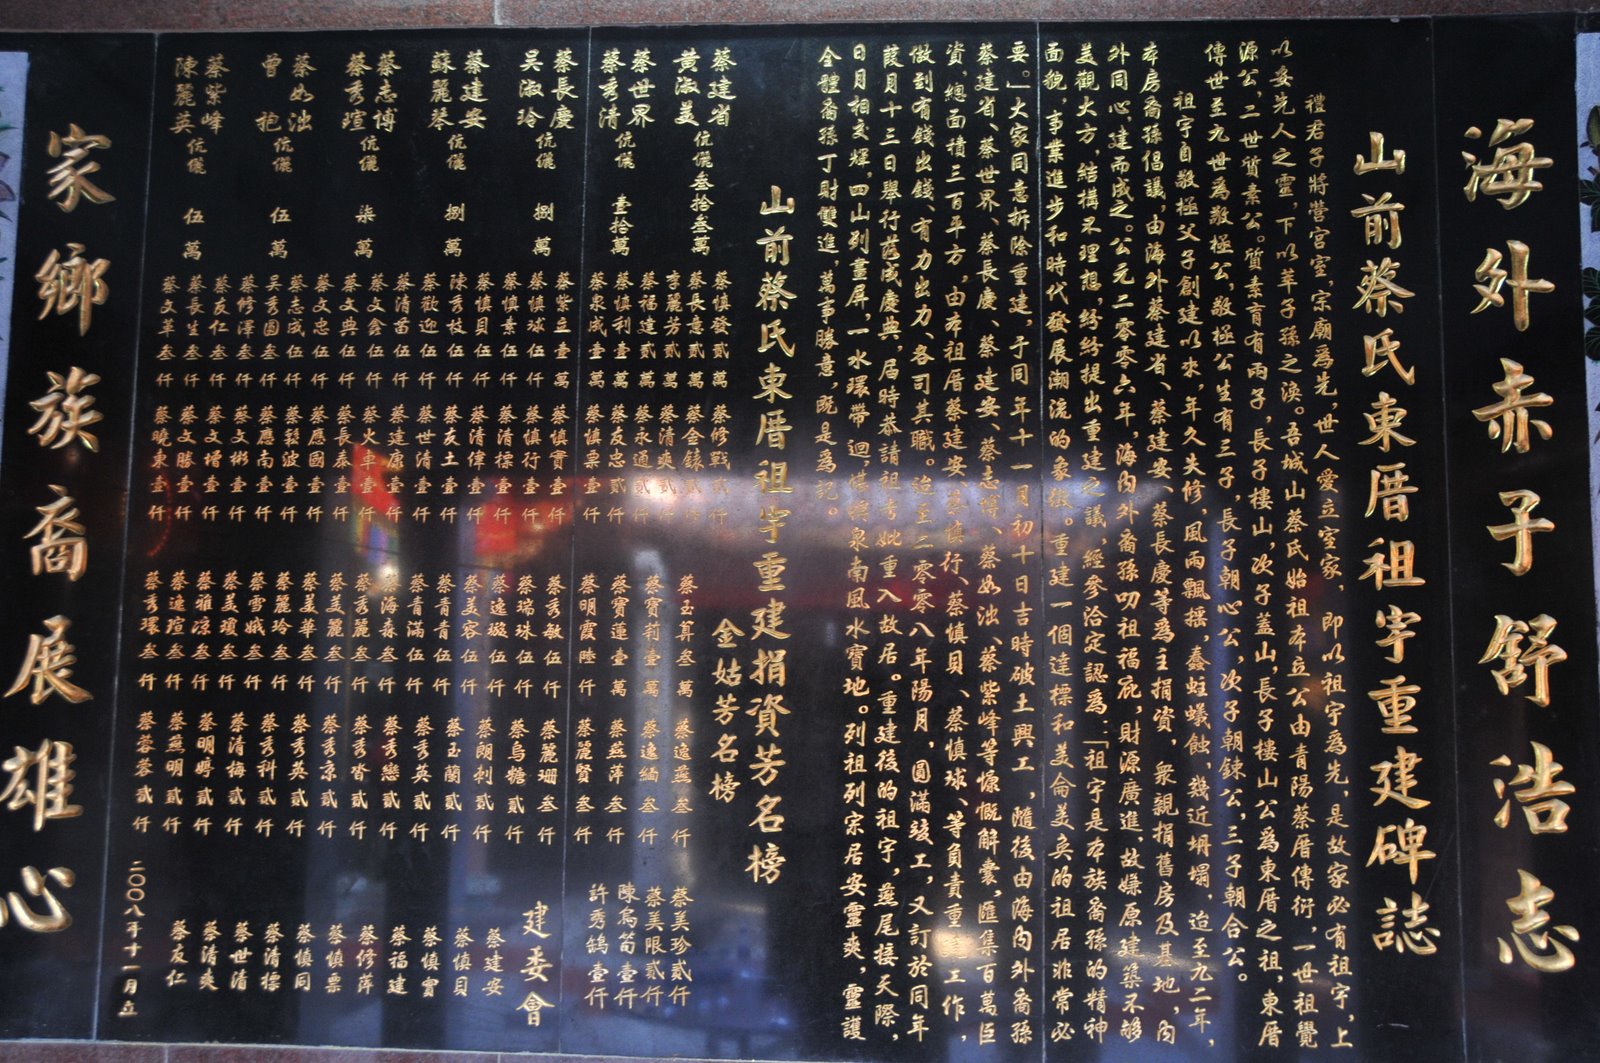 海外赤子舒浩志
山前蔡氏東厝祖宇重建碑誌
禮君子將營宮室，宗廟為先，世人愛立室家，即以祖宇為先，是故家必有祖宇，上
以妥先人之靈，下以萃子孫之渙。吾城山蔡氏始祖本立公由青陽蔡厝傳衍，一世祖覺
源公，二世質素公。質素育有兩子，長子樓山，次子蓋山，長子樓山公為東厝之祖，東厝
傳世至九世為敬極公，敬極公生有三子，長子朝心公，次子朝鍊公，三子朝合公。
祖宇自敬極父子創建以來，年久失修，風雨飄搖，蠹蛀蟻蝕，幾近坍塌，迨至九二年，
本房裔孫倡議，由海外蔡建省、蔡建安、蔡長慶等為主捐資，衆親捐舊房及基地，內
外同心，建而成之。公元二零零六年，海內外裔孫叨祖福庇，財源廣進，故嫌原建築不夠
美觀大方，結構不理想，紛紛提出重建之議，經參洽定認為：「祖宇是本族裔孫的精神
面貌，事業進步和時代發展潮流的象徵。重建一個達標和美侖美奐的祖居非常必
要。」大家同意拆除重建，于同年十一月初十日吉時破土興工，隨後由海內外裔孫
蔡建省、蔡世界、蔡長慶、蔡建安、蔡志博、蔡如沰、蔡紫峰等慷慨解囊，匯集百萬巨
資，總面積三百平方，由本祖厝蔡建安、蔡慎行、蔡慎貝、蔡慎球、等負責重建工作，
做到有錢出錢、有力出力、各司其職。迨至二零零八年陽月，圓滿竣工，又訂於同年
葭月十三日舉行落成慶典，屆時恭請祖考妣重入故居。重建後的祖宇，燕尾接天際，
日月相交輝，四山列畫屏，一水環帶迴，堪鵷泉南風水寶地。列祖列宗居安靈爽，靈護
全體裔孫丁財雙進，萬事勝意，既是為記。
山前蔡氏東厝祖宇重建捐資芳名榜
金姑芳名榜
蔡建省 黃淑美 伉儷 叁拾叁萬
蔡世界 蔡秀清 伉儷 壹拾萬
蔡長慶 吳淑玲 伉儷 捌萬
蔡建安 蘇麗琴 伉儷 捌萬
蔡志博 蔡秀瑄 伉儷 柒萬
蔡如沰 曾抱 伉儷 伍萬
蔡紫峰 陳麗英 伉儷 伍萬
蔡慎發貳萬
蔡長意貳萬
李麗芳貳萬
蔡福建貳萬
蔡慎利壹萬
蔡泉成壹萬
蔡紫立壹萬
蔡慎球伍仟
蔡慎素伍仟
蔡慎貝伍仟
陳秀枝伍仟
蔡歡迎伍仟
蔡清苗伍仟
蔡文會伍仟
蔡文典伍仟
蔡文忠伍仟
蔡志成伍仟
吳秀圓叁仟
蔡修澤叁仟
蔡友仁叁仟
蔡長生叁仟
蔡文革叁仟
蔡修戰貳仟
蔡金錶貳仟
蔡清爽貳仟
蔡永通貳仟
蔡友忠貳仟
蔡慎票壹仟
蔡慎實壹仟
蔡慎行壹仟
蔡清標壹仟
蔡清偉壹仟
蔡友土壹仟
蔡世清壹仟
蔡建康壹仟
蔡火車壹仟
蔡長泰壹仟
蔡應國壹仟
蔡毅波壹仟
蔡應南壹仟
蔡文彬壹仟
蔡文增壹仟
蔡文勝壹仟
蔡曉東壹仟
蔡玉算叁萬
蔡寶莉壹萬
蔡寶蓮壹萬
蔡明霞陸仟
蔡秀敏伍仟
蔡瑞珠伍仟
蔡遠璇伍仟
蔡美容伍仟
蔡青青伍仟
蔡青滿伍仟
蔡海森叁仟
蔡秀麗叁仟
蔡美麗叁仟
蔡美華叁仟
蔡麗玲叁仟
蔡雪娥叁仟
蔡美瓊叁仟
蔡雅凉叁仟
蔡遠瑄叁仟
蔡秀環叁仟
蔡逸燕叁仟
蔡逸緬叁仟
蔡燕萍叁仟
蔡麗賢叁仟
蔡麗珊叁仟
蔡烏糖貳仟
蔡朗刺貳仟
蔡玉蘭貳仟
蔡秀英貳仟
蔡秀戀貳仟
蔡秀沓貳仟
蔡秀京貳仟
蔡秀英貳仟
蔡秀科貳仟
蔡清梅貳仟
蔡明娉貳仟
蔡燕明貳仟
蔡蓉蓉貳仟
蔡美珍貳仟
蔡美眼貳仟
陳烏筍壹仟
許秀鵠壹仟
建委會
蔡建安
蔡慎貝
蔡慎實
蔡福建
蔡修萍
蔡慎票
蔡慎同
蔡清標
蔡世清
蔡清爽
蔡友仁
二〇〇八年十一月立
家鄉族裔展雄心